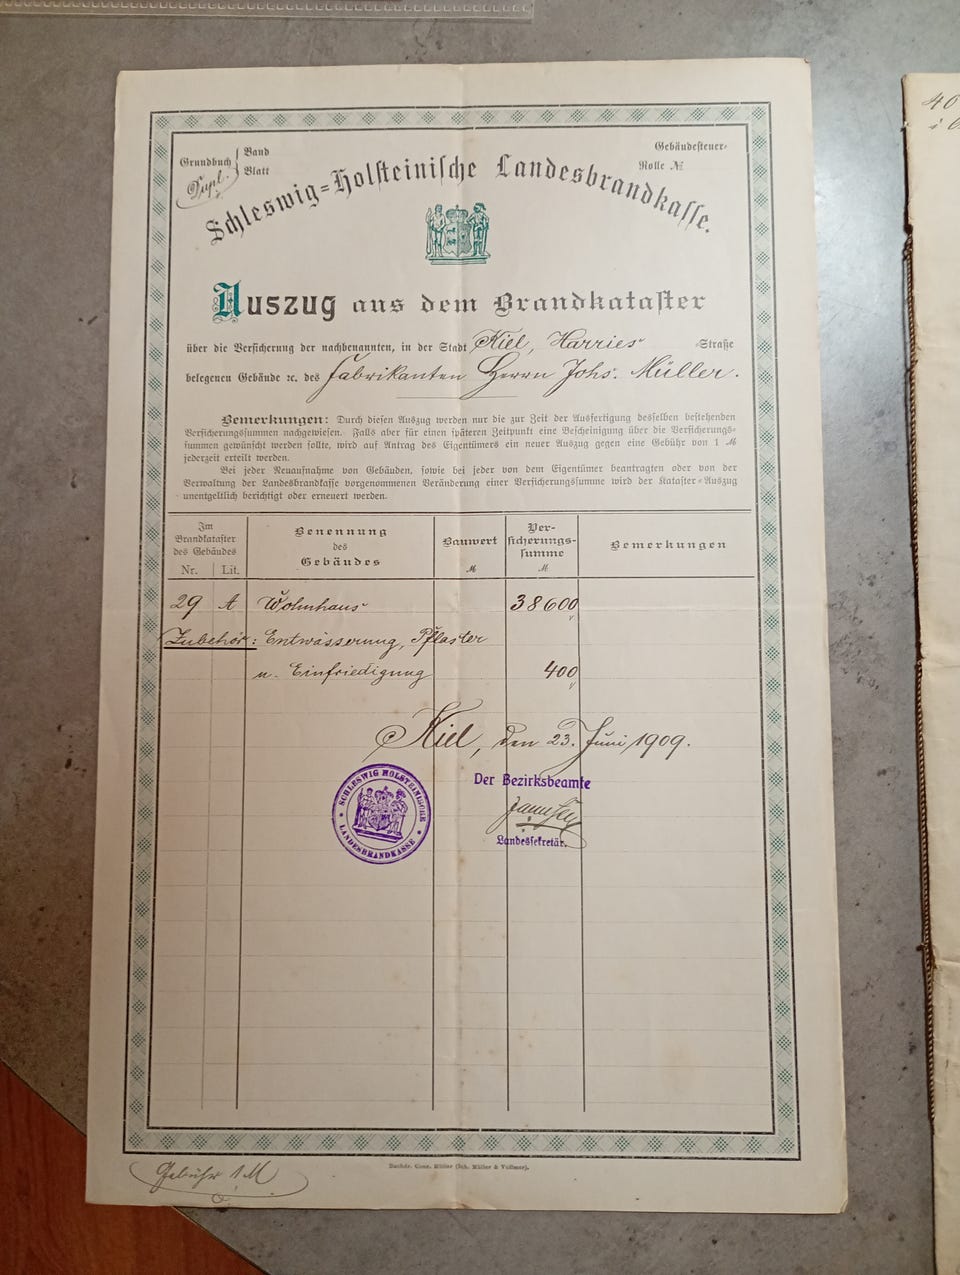 Grundbuch { Band
Blatt
Dupl.
Gebäudesteuer-
Rolle №
Schleswig-Holsteinische Landesbrandkasse.
Auszug aus dem Brandkataster
über die Versicherung der nachbenannten, in der Stadt Kiel, Harries -Straße
belegenen Gebäude ꝛc. des Fabrikanten Herrn Johs. Müller.
Bemerkungen: Durch diesen Auszug werden nur die zur Zeit der Ausfertigung desselben bestehenden
Versicherungssummen nachgewiesen. Falls aber für einen späteren Zeitpunkt eine Bescheinigung über die Versicherungs-
summen gewünscht werden sollte, wird auf Antrag des Eigentümers ein neuer Auszug gegen eine Gebühr von 1 M
jederzeit erteilt werden.
Bei jeder Neuaufnahme von Gebäuden, sowie bei jeder von dem Eigentümer beantragten oder von der
Verwaltung der Landesbrandkasse vorgenommenen Veränderung einer Versicherungssumme wird der Kataster-Auszug
unentgeltlich berichtigt oder erneuert werden.
Im
Brandkataster
des Gebäudes
Nr. Lit.
Benennung
des
Gebäudes
Bauwert
M
Ver-
sicherungs-
summe
M
Bemerkungen
29 A Wohnhaus 38600
Zubehör: Entwässerung, Pflaster
u. Einfriedigung 400
Kiel, den 23. Juni 1909.
SCHLESWIG HOLSTEINISCHE
LANDESBRANDKASSE
Der Bezirksbeamte
Landessekretär.
Gebühr 1 M
Buchdr. Conr. Müller (Joh. Müller & Vollmer).
40